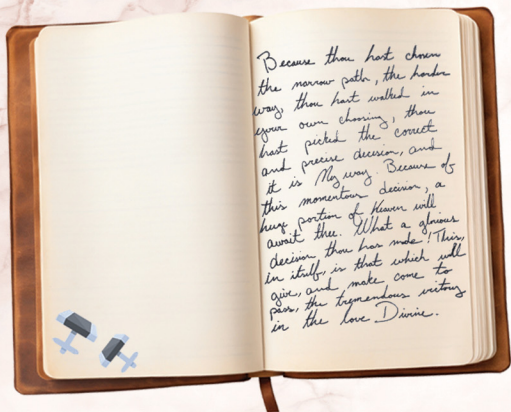 Because thou hast chosen
the narrow path, the harder
way, thou hast walked in
your own choosing, thou
hast picked the correct
and precise decision, and
it is My way. Because of
this momentous decision, a
huge portion of Heaven will
await thee. What a glorious
decision thou has made! This,
in itself, is that which will
give, and make come to
pass, the tremendous victory
in the love Divine.